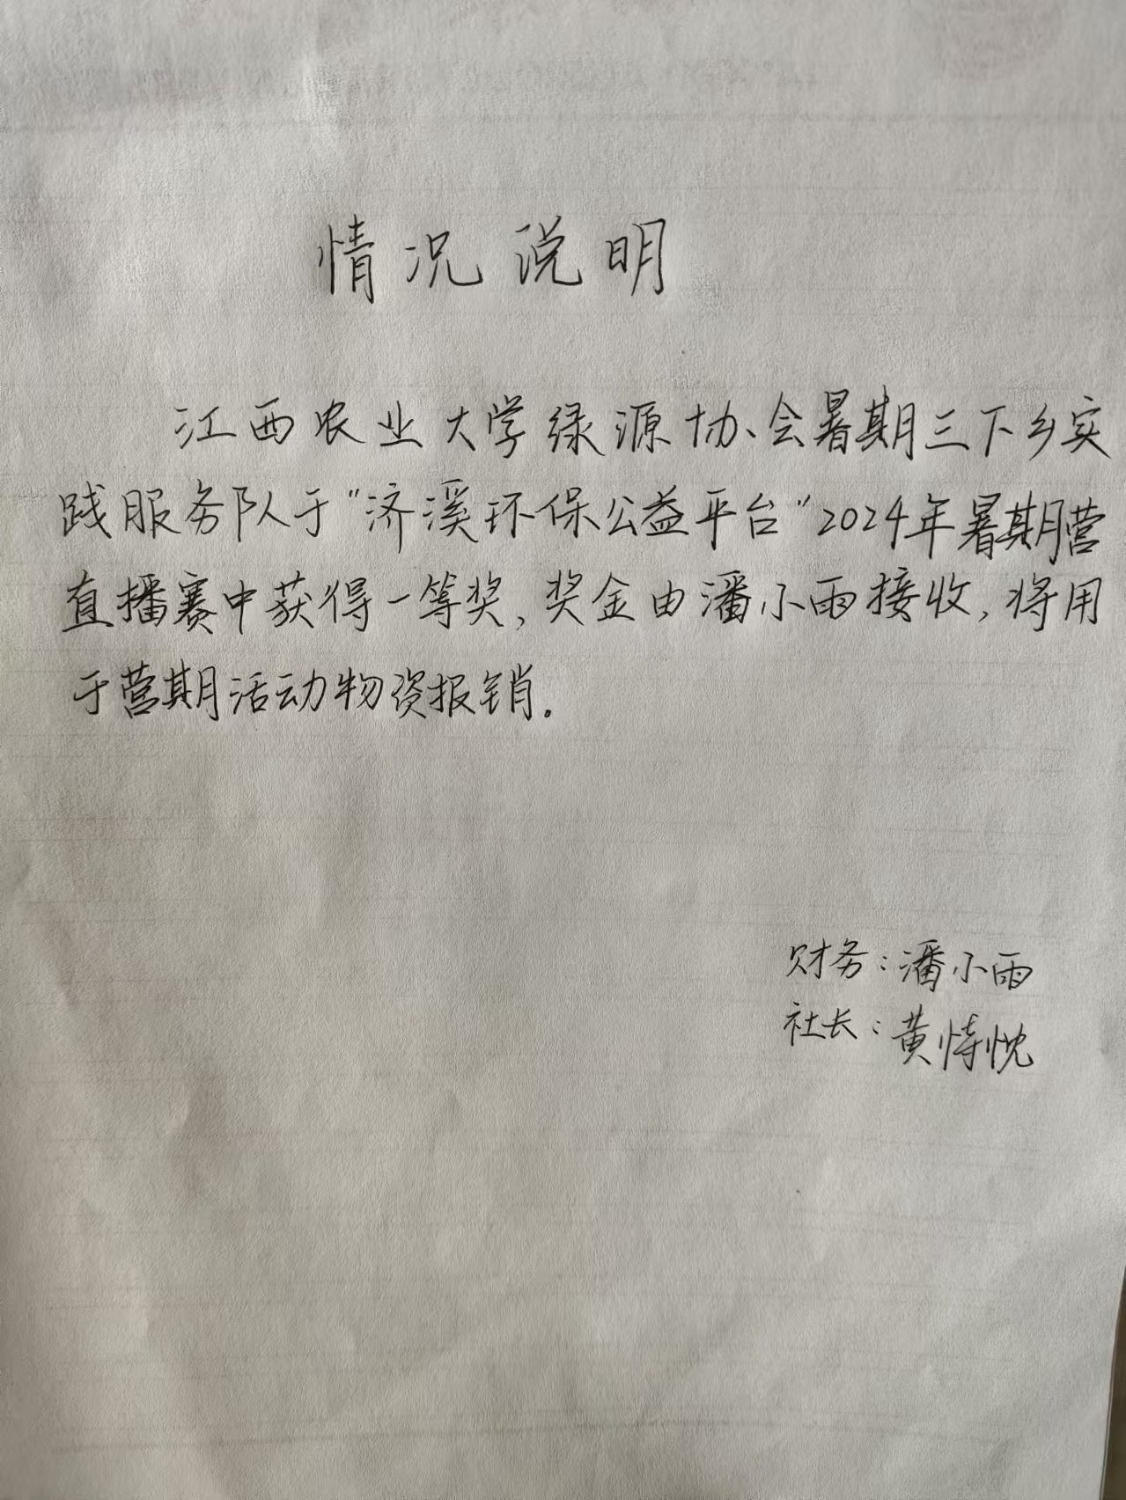 情况说明
江西农业大学绿源协会暑期三下乡实
践服务队于"济溪环保公益平台"2024年暑期营
直播赛中获得一等奖,奖金由潘小雨接收,将用
于营期活动物资报销.
财务:潘小雨
社长:黄恃忱